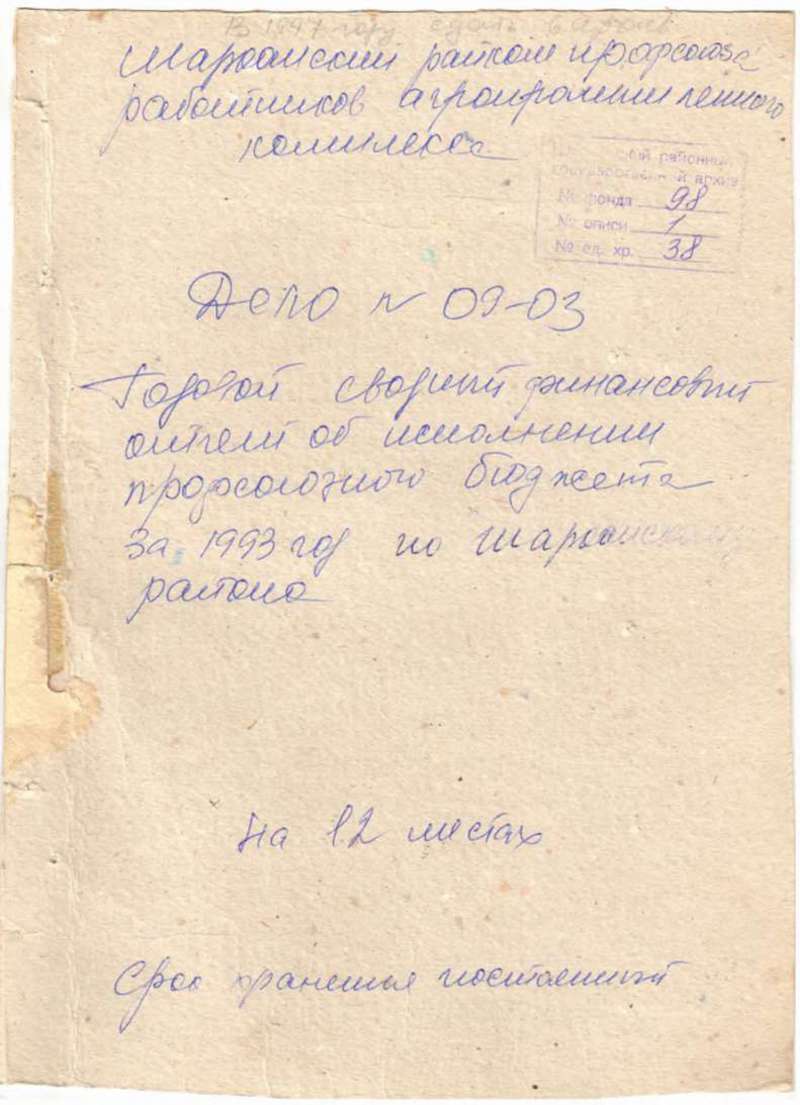 В 1997 году сдать в архив
Шарканский райком профсоюза
работников агропромышленного
комплекса
районный
государственный архив
№ фонда 98
№ описи 1
№ ед. хр. 38
Дело № 09-03
Годовой сводный финансовый
отчет об исполнении
профсоюзного бюджета
за 1993 год по Шарканскому
району
на 12 листах
Срок хранения постоянный